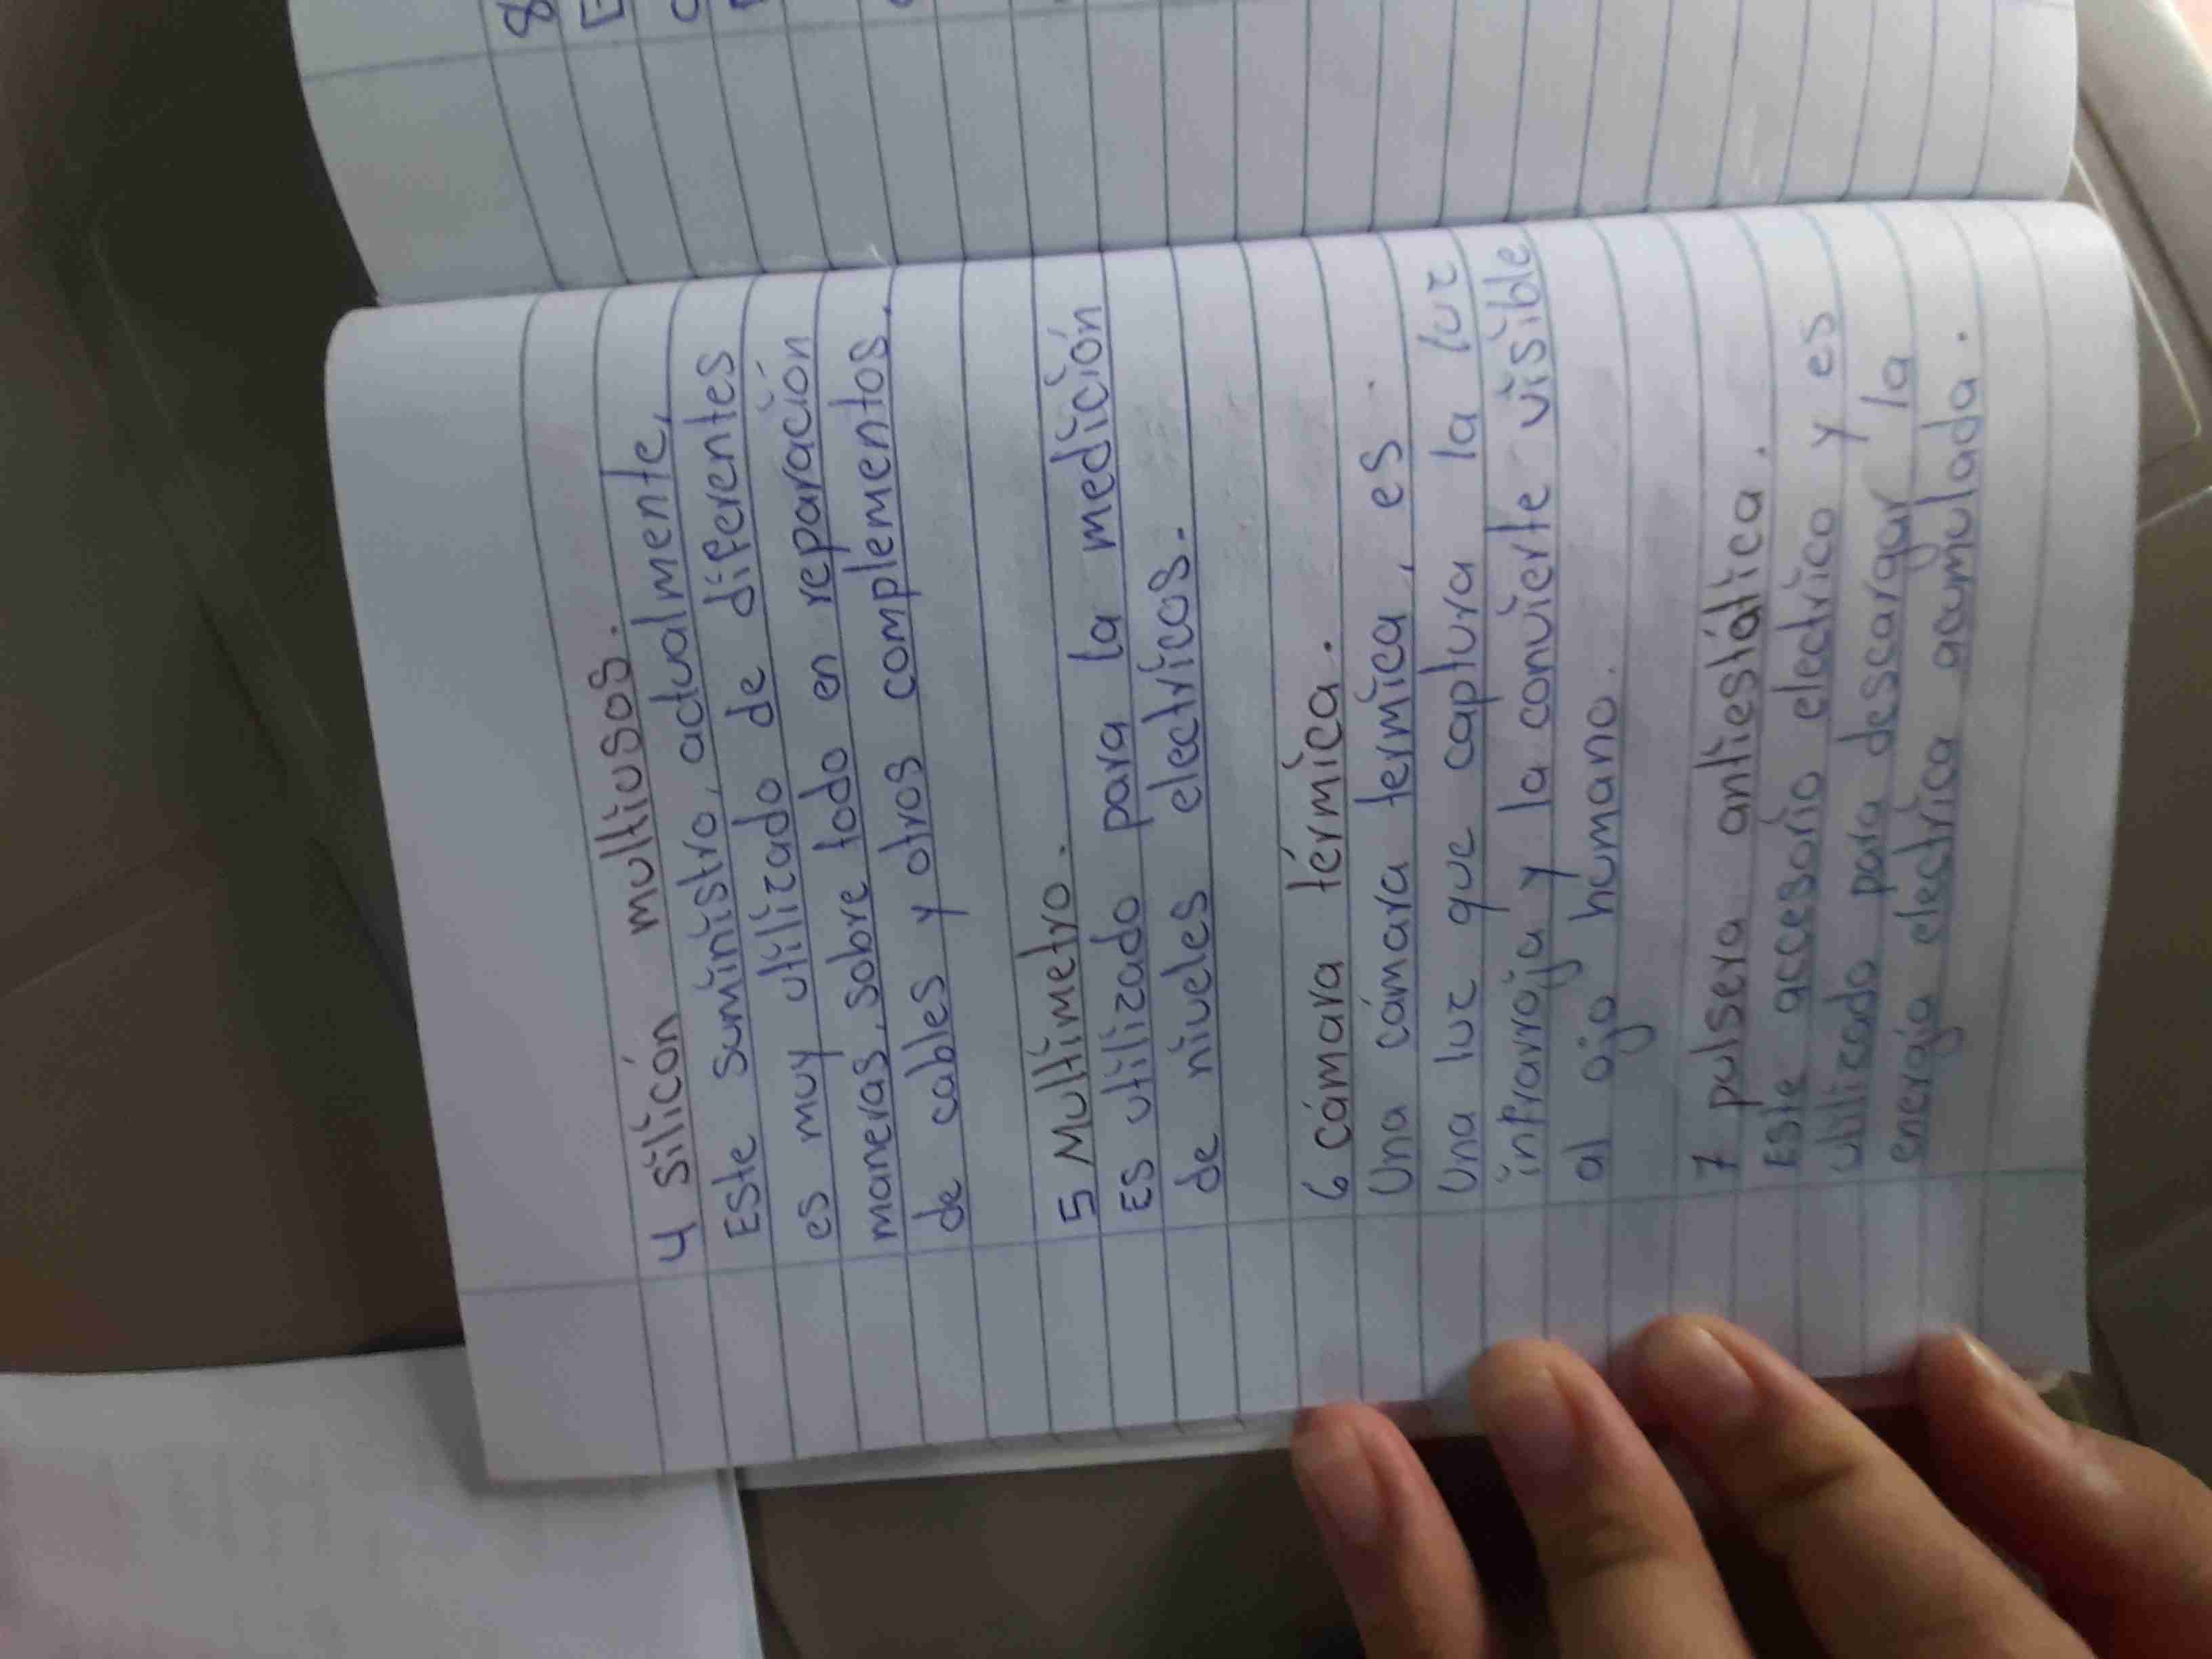 4 silicón multiusos.
Este suministro, actualmente,
es muy utilizado de diferentes
maneras, sobre todo en reparación
de cables y otros complementos.
5 Multimetro.
Es utilizado para la medición
de niveles electricos.
6 cámara térmica.
Una cámara termica, es
una luz que captura la luz
infrarroja y la convierte visible
al ojo humano.
7 pulsera antiestática.
Este accesorio electrico y es
utilizado para descargar la
energia electrica acumulada.
8
E